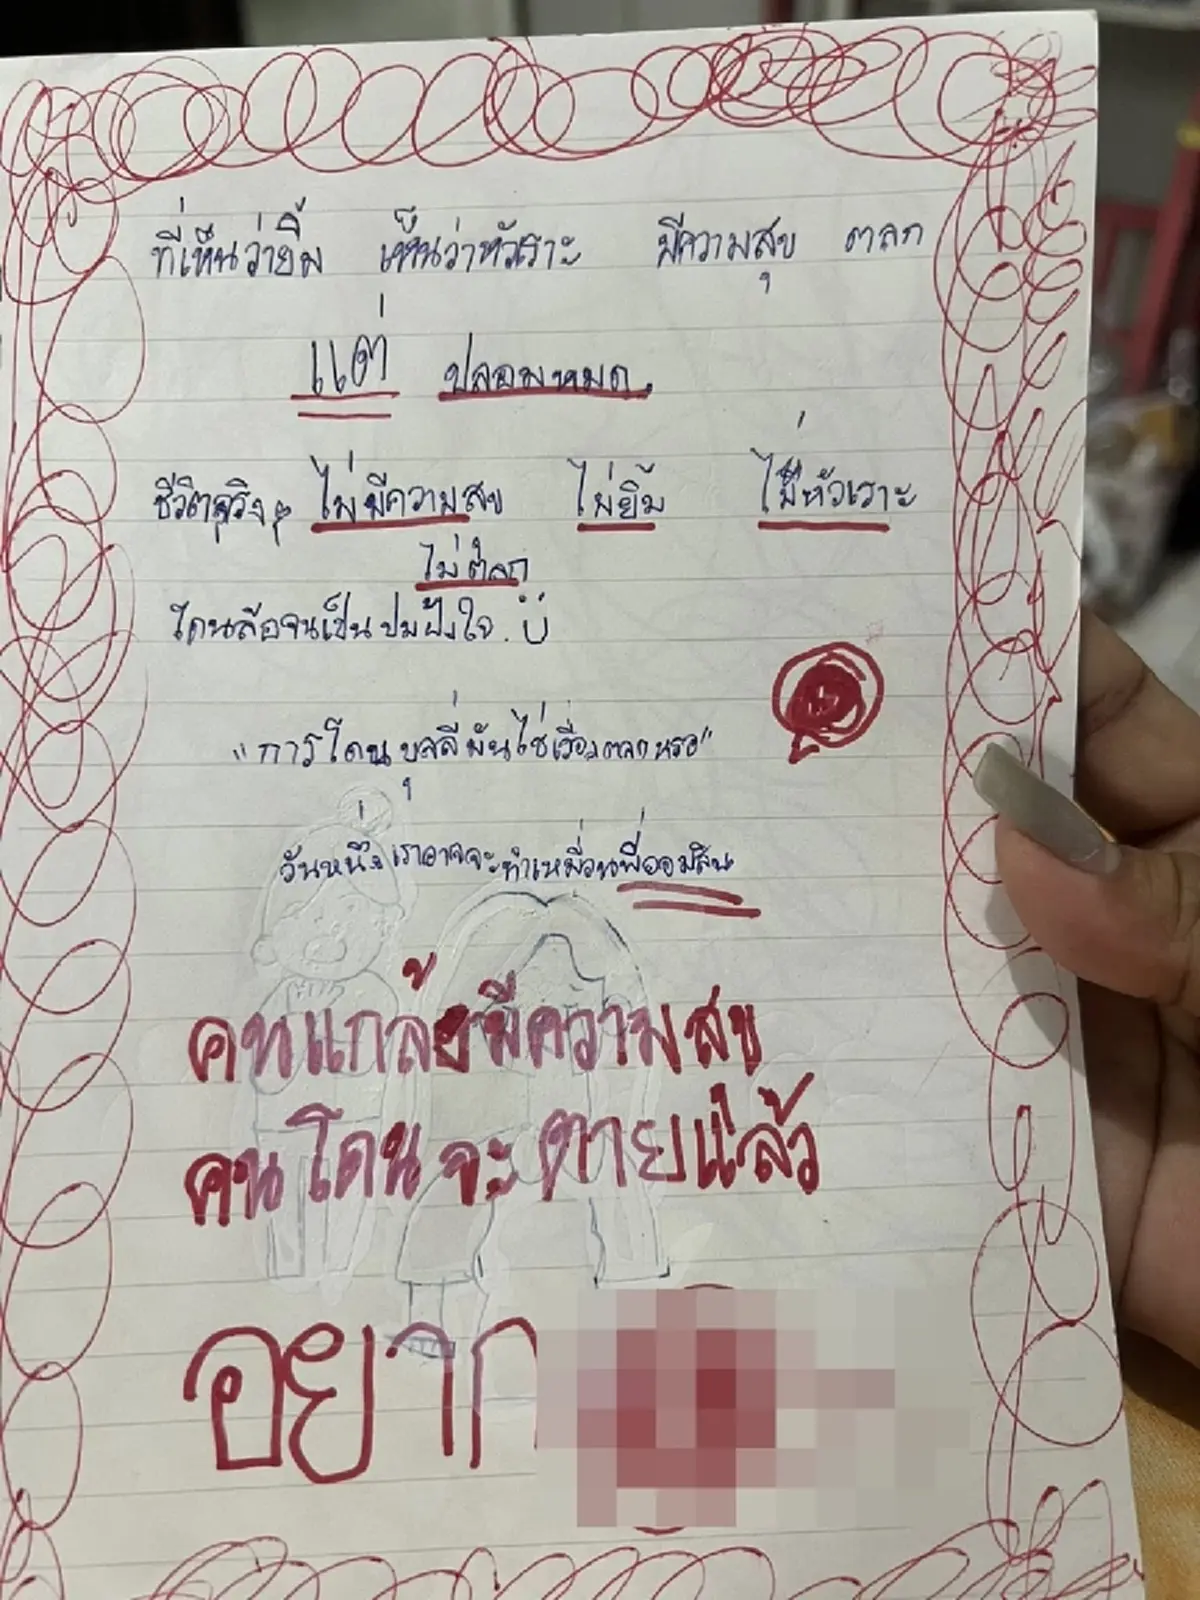 ที่เห็นว่ายิ้ม เห็นว่าหัวเราะ มีความสุข ตลก
แต่ ปลอมหมด
ชีวิตจริงๆ ไม่มีความสุข ไม่ยิ้ม ไม่หัวเราะ
ไม่ตลก
โดนล้อจนเป็นปมฝังใจ.
"การโดนบุลลี่มันใช่เรื่องตลกหรอ"
วันหนึ่งเราอาจจะทำเหมือนพี่ออมสิน
คนแกล้งมีความสุข
คนโดนจะตายแล้ว
อยาก